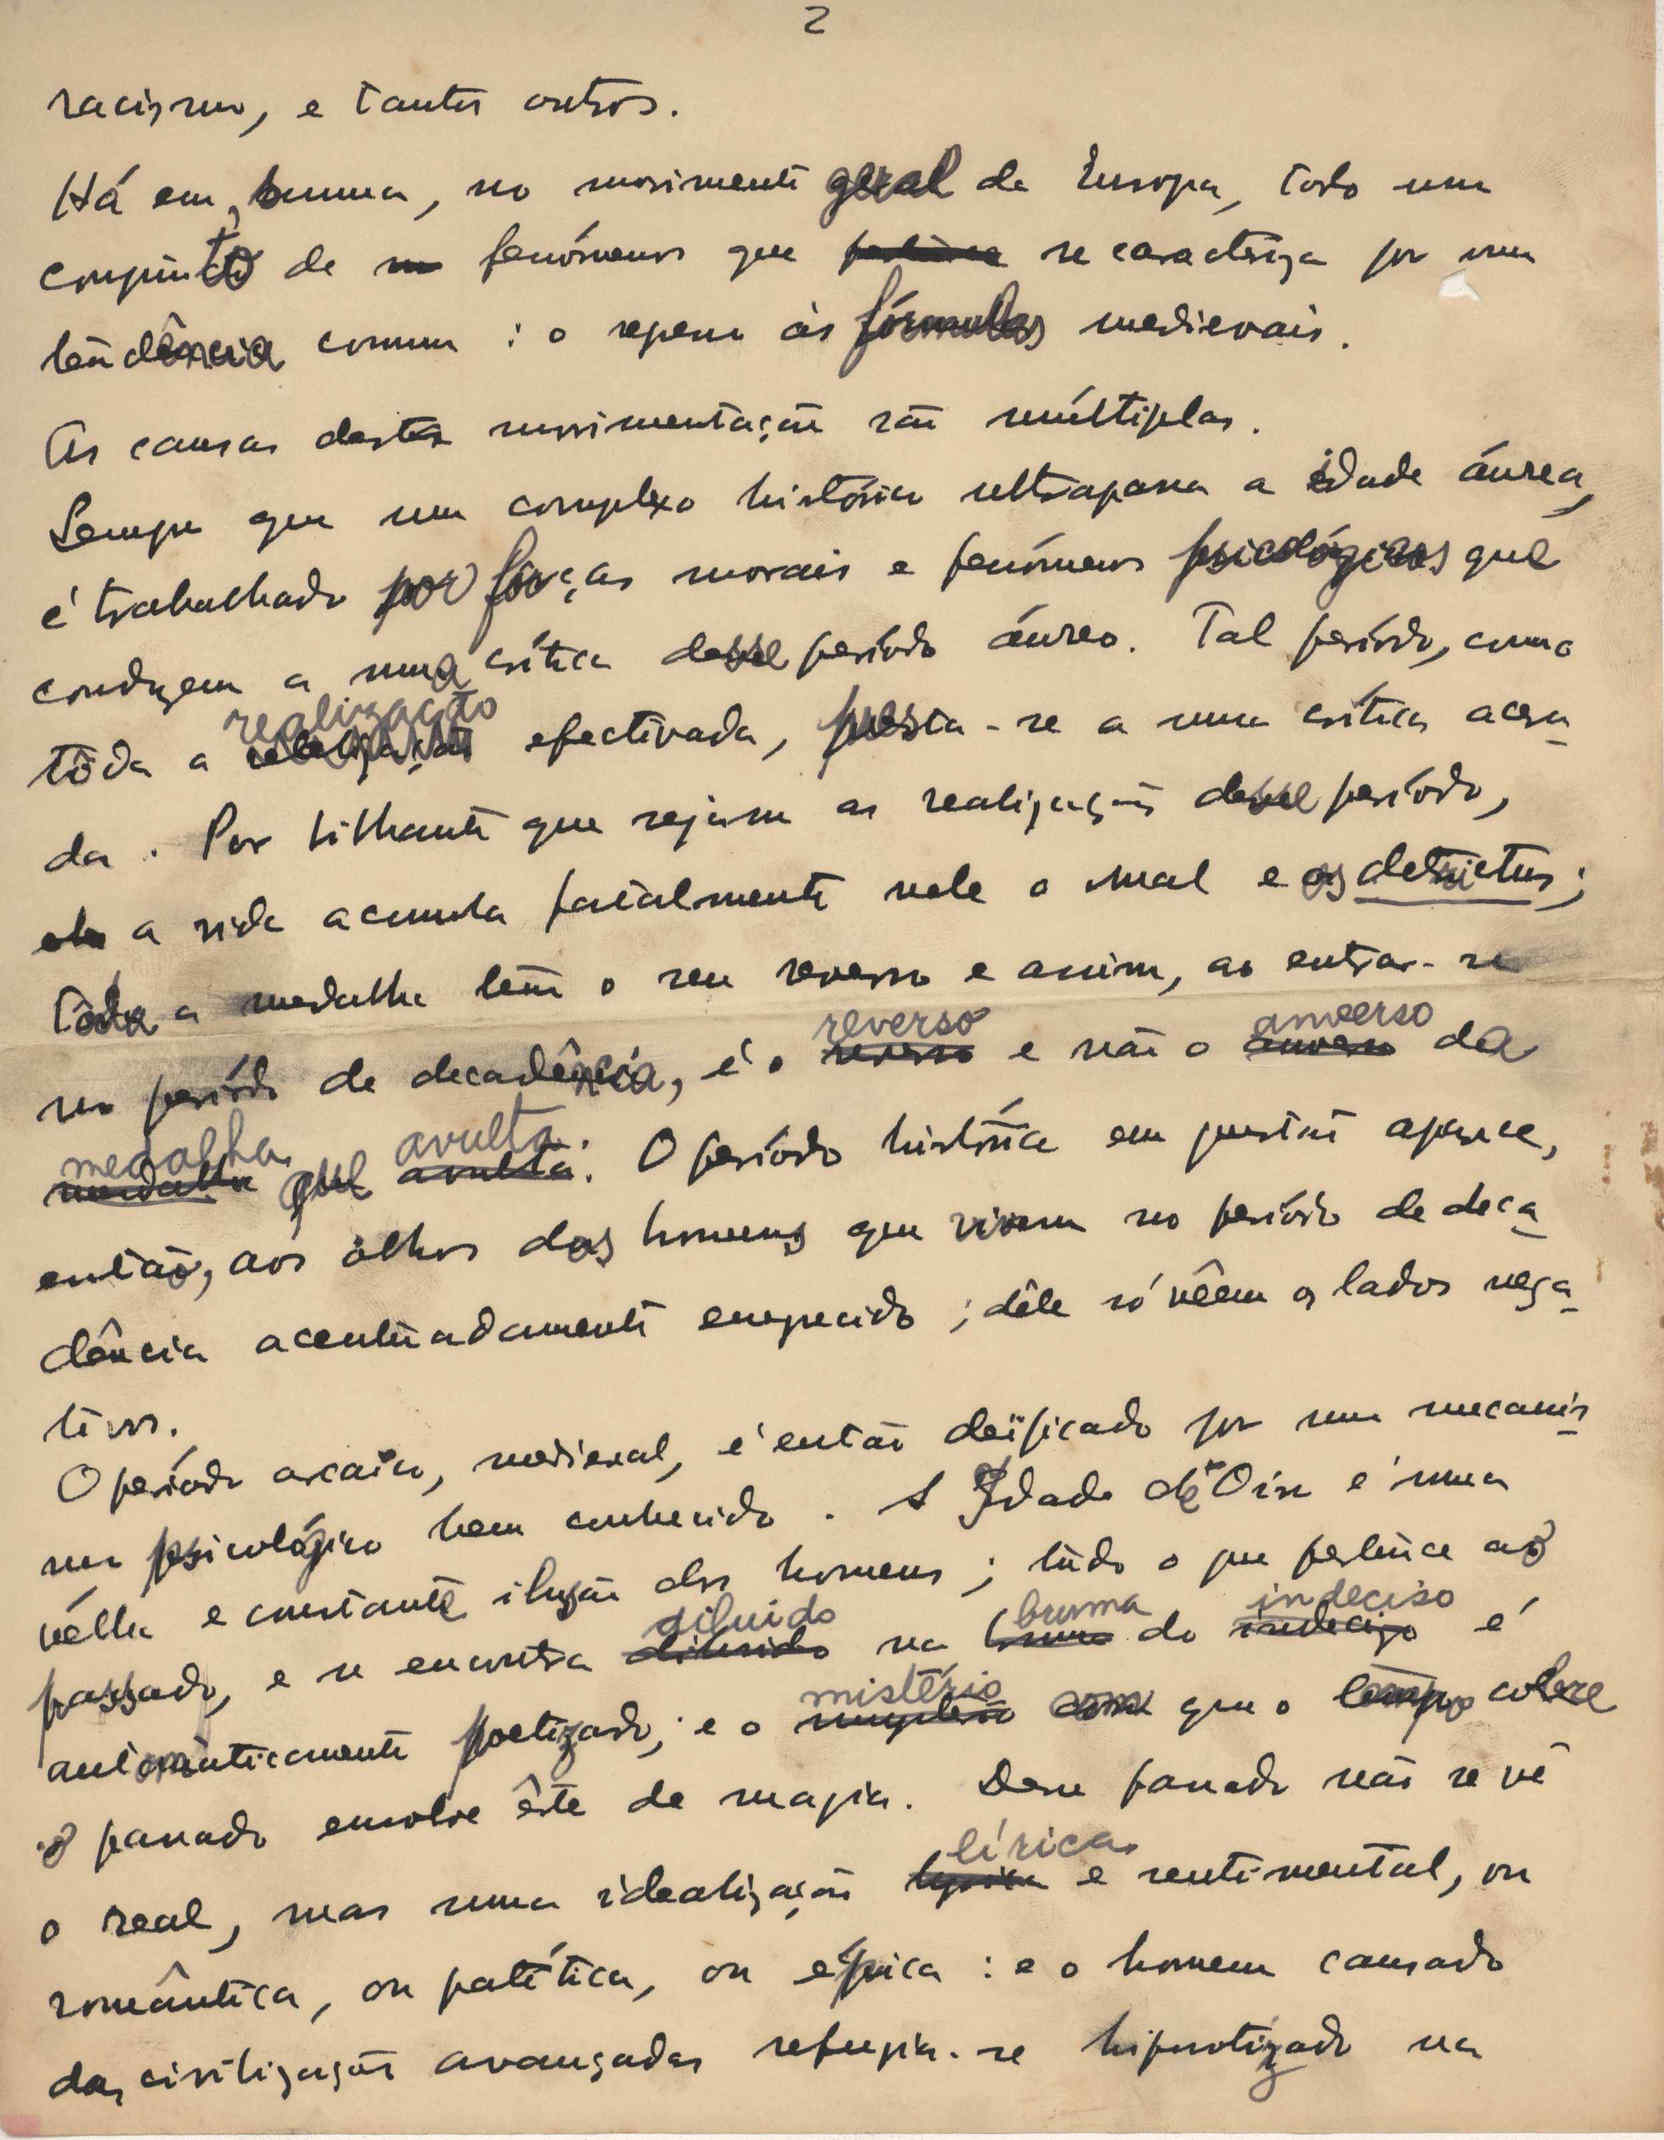 2
racismo, e tantos outros.
Há em suma, no movimento geral da Europa, todo um
conjunto de fenómenos que se caracteriza por uma
tendência comum : o regresso às fórmulas medievais.
As causas desta movimentação são múltiplas.
Sempre que um complexo histórico ultrapassa a idade áurea,
é trabalhado por forças morais e fenómenos psicológicos que
conduzem a uma crítica desse período áureo. Tal período, como
tôda a realização efectivada, presta-se a uma crítica acera
da. Por brilhantes que sejam as realizações desse período,
a vida acumula fatalmente nele o mal e os detrictus;
Toda a medalha tem o seu reverso e assim, ao entrar-se
no período de decadência, é o reverso e não o anverso da
medalha que avulta. O período histórico em questão aparece,
então, aos olhos dos homens que vivem no período de deca
dência acentuadamente enegrecido; dêle só vêem os lados nega-
tivos.
O período arcaico, medieval, é então deïficado por um mecanis
mo psicológico bem conhecido. A Idade de Oiro é uma
vélha e constante ilusão dos homens; tudo o que pertence ao
passado, e se encontra diluido na bruma do indeciso é
automàticamente poetizado; e o mistério com que o tempo colore
o passado envolve êste de magia. Desse passado não se vê
o real, mas uma idealização lírica e sentimental, ou
romântica, ou patética, ou épica : e o homem cansado
das civilizações avançadas refugia-se hipnotizado na